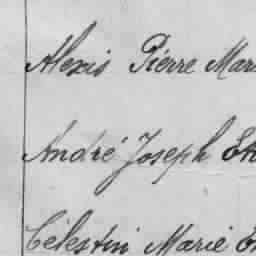 Alexis Pierre Mar
André Joseph Et
Célestin Marie E